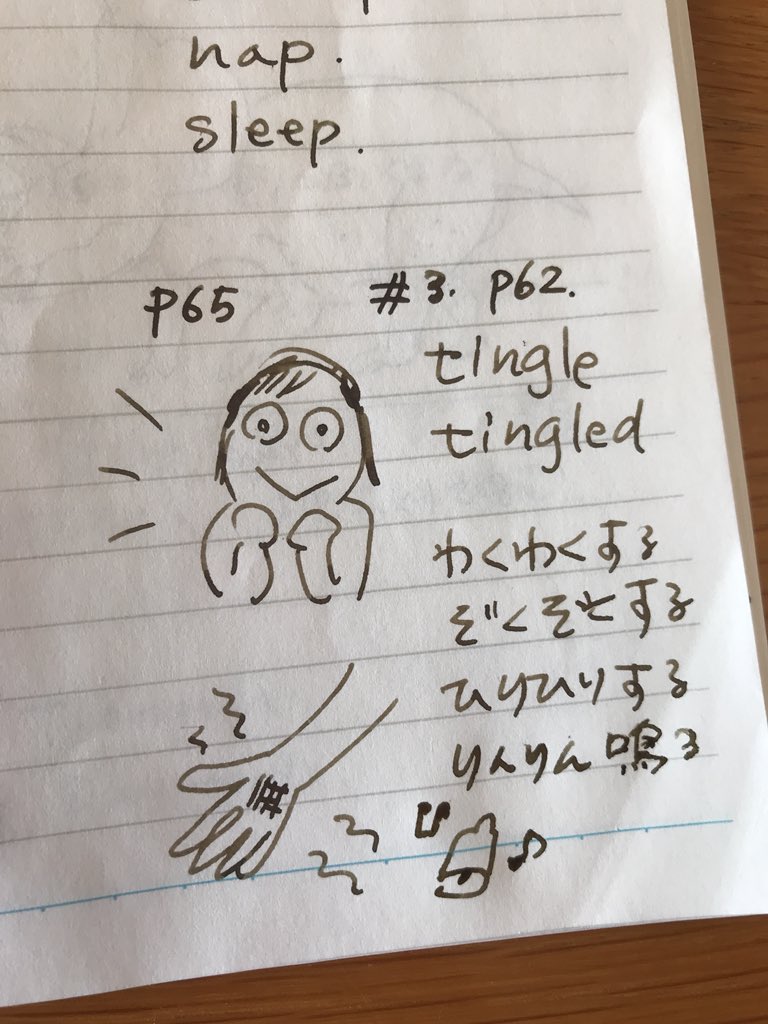 nap.
sleep.
P65
#3. P62.
tingle
tingled
わくわくする
ぞくぞくする
ひりひりする
りんりん鳴る